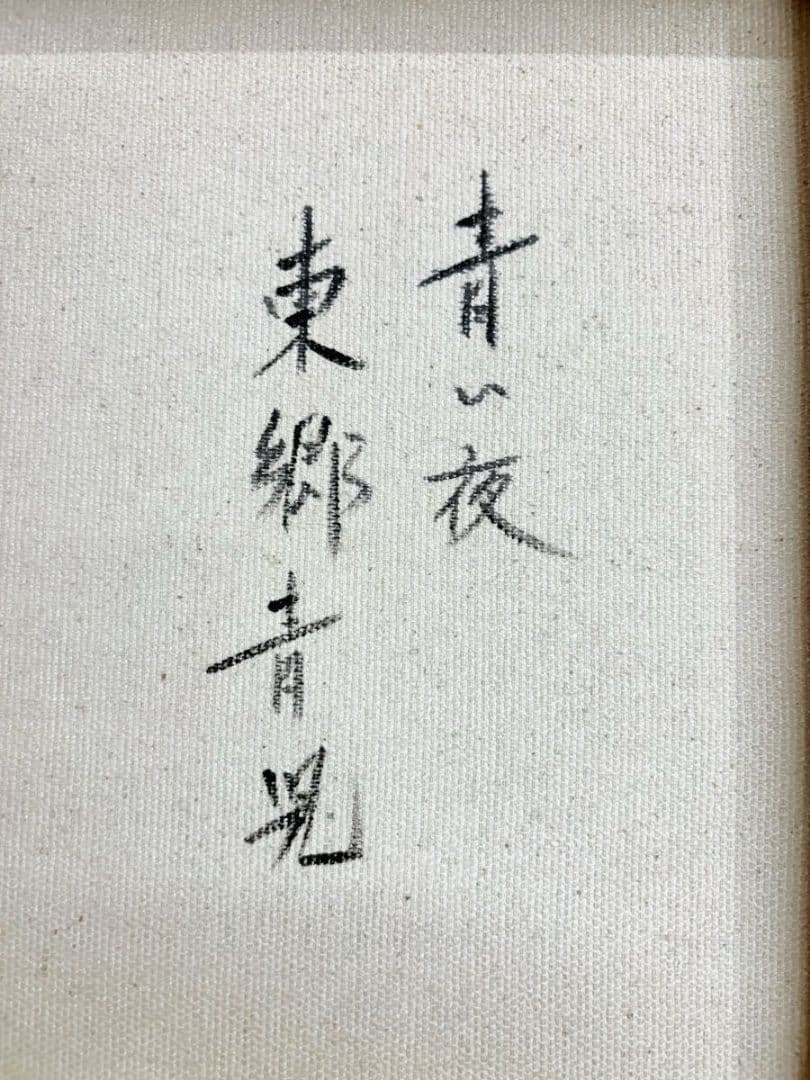 青い夜
東郷青児